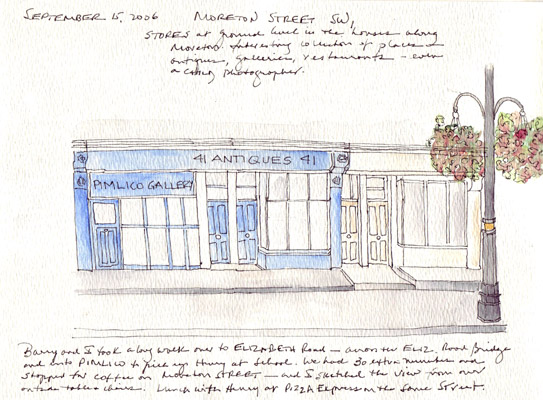 SEPTEMBER 15, 2006 MORETON STREET SW1
STORES at ground level in the houses along
Moreton. Interesting collection of places -
antiques, galleries, restaurants - even
a photographer.
41 ANTIQUES 41
PIMLICO GALLERY
Barry and I took a long walk over to ELIZABETH Road - across the ELIZ. Road Bridge
and into PIMLICO to pick up Henry at School. We had 30 extra minutes and
stopped for coffee on Moreton STREET - and I sketched the view from our
outside table & chairs. Lunch with Henry at PIZZA Express on the same Street.